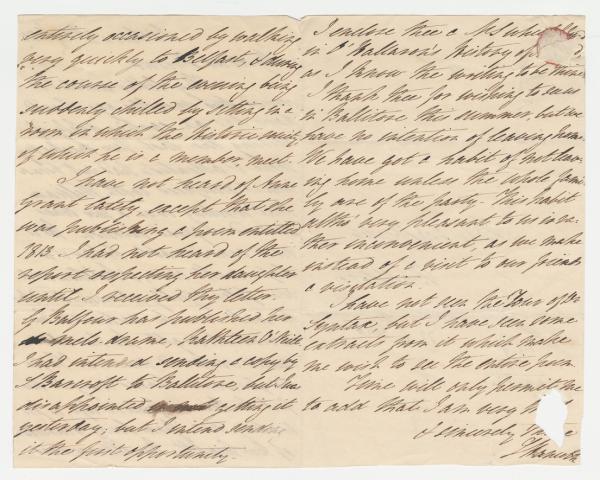 entirely occasioned by walking
very quickly to Belfast, & during
the course of the evening being
suddenly chilled by sitting in a
room in which the historic
of which he is a member meet.
I have not heard of Anne
Grant lately, except that she
was publishing a poem entitled
1813. I had not heard of the
report respecting her daughter
until I received thy letter.
Balfour has published her
melo drame, Kathleen O'Neill
I had intended sending a copy by
J Bancroft to Balitore, but was
disappointed getting it
yesterday; but I intend
it the first opportunity.
I enclose thee a MS which
in O'Halloran's history of
as I know the writing to be thine
I thank thee for wishing to see us
in Balitore this summer, but we
have no intention of leaving home.
We have got a habit of not leav
ing home unless the whole fami
ly are of the party. This habit
altho' very pleasant to us is ra
ther inconvenient, as we make
instead of a visit to our friends
a visitation.
I have not seen the Tour of Dr
Syntax, but I have seen some
extracts from it which make
me wish to see the entire poem
Time will only permit me
to add that I am very
& sincerely thine